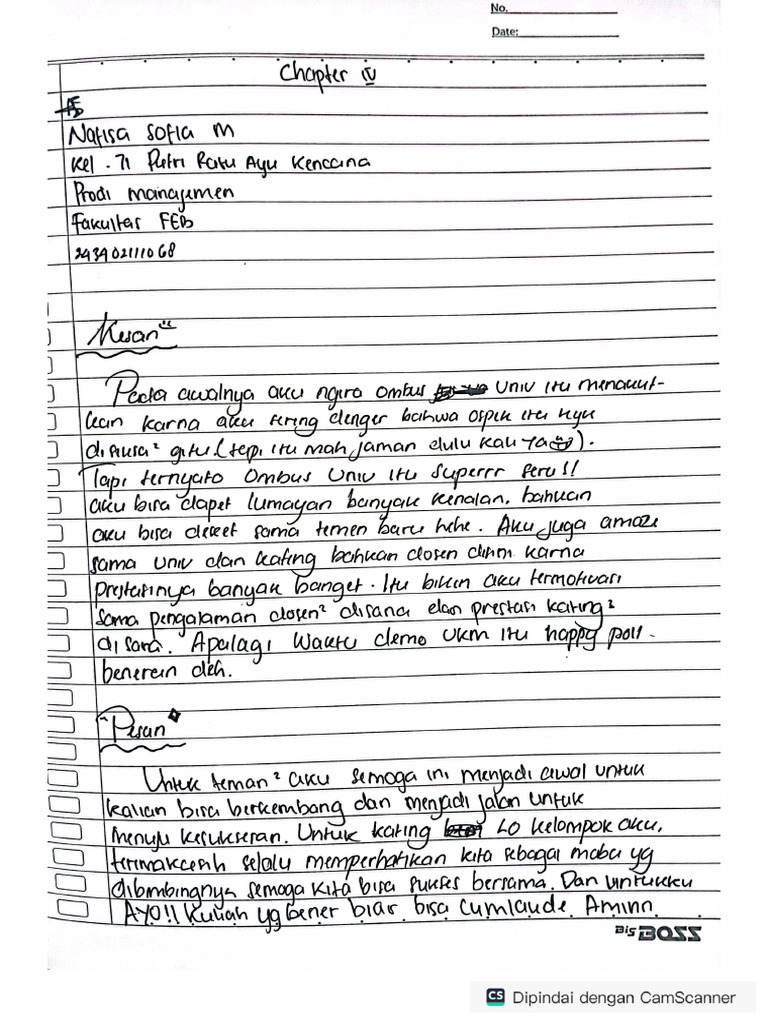 No.
Date:
Chapter IV
Nafisa Sofia M
Kel . 71 Putri Ratu Ayu Kencana
Prodi manajemen
Fakultas FEB
243402111068
Kesan
Pada awalnya aku ngira Ombus Univ itu menakut-
kan karna aku sering denger bahwa ospek itu kyu
di siksa² gitu (tapi itu mah jaman dulu kali ya).
Tapi ternyata Ombus Univ itu superrr seru!!
aku bisa dapet lumayan banyak kenalan, bahkan
aku bisa deket sama temen baru hehe. Aku juga amaze
sama univ dan kating bahkan dosen disini karna
prestasinya banyak banget. Itu bikin aku termotivasi
sama pengalaman dosen² disana dan prestasi kating²
disana. Apalagi waktu demo UKM itu happy poll
benerein deh.
"Pesan"
Untuk teman² aku semoga ini menjadi awal untuk
kalian bisa berkembang dan menjadi jalan untuk
menuju kesuksesan. Untuk kating LO kelompok aku,
terimakasih selalu memperhatikan kita sebagai maba yg
dibimbingnya semoga kita bisa sukses bersama. Dan untukku
AYO!! Kuliah yg bener biar bisa Cumlaude. Aminn.
Big BOSS
CS Dipindai dengan CamScanner